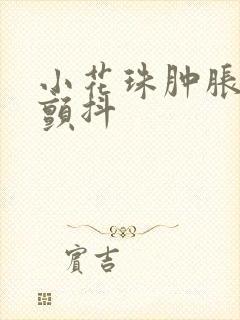 小花珠肿胀
颤抖
賓吉